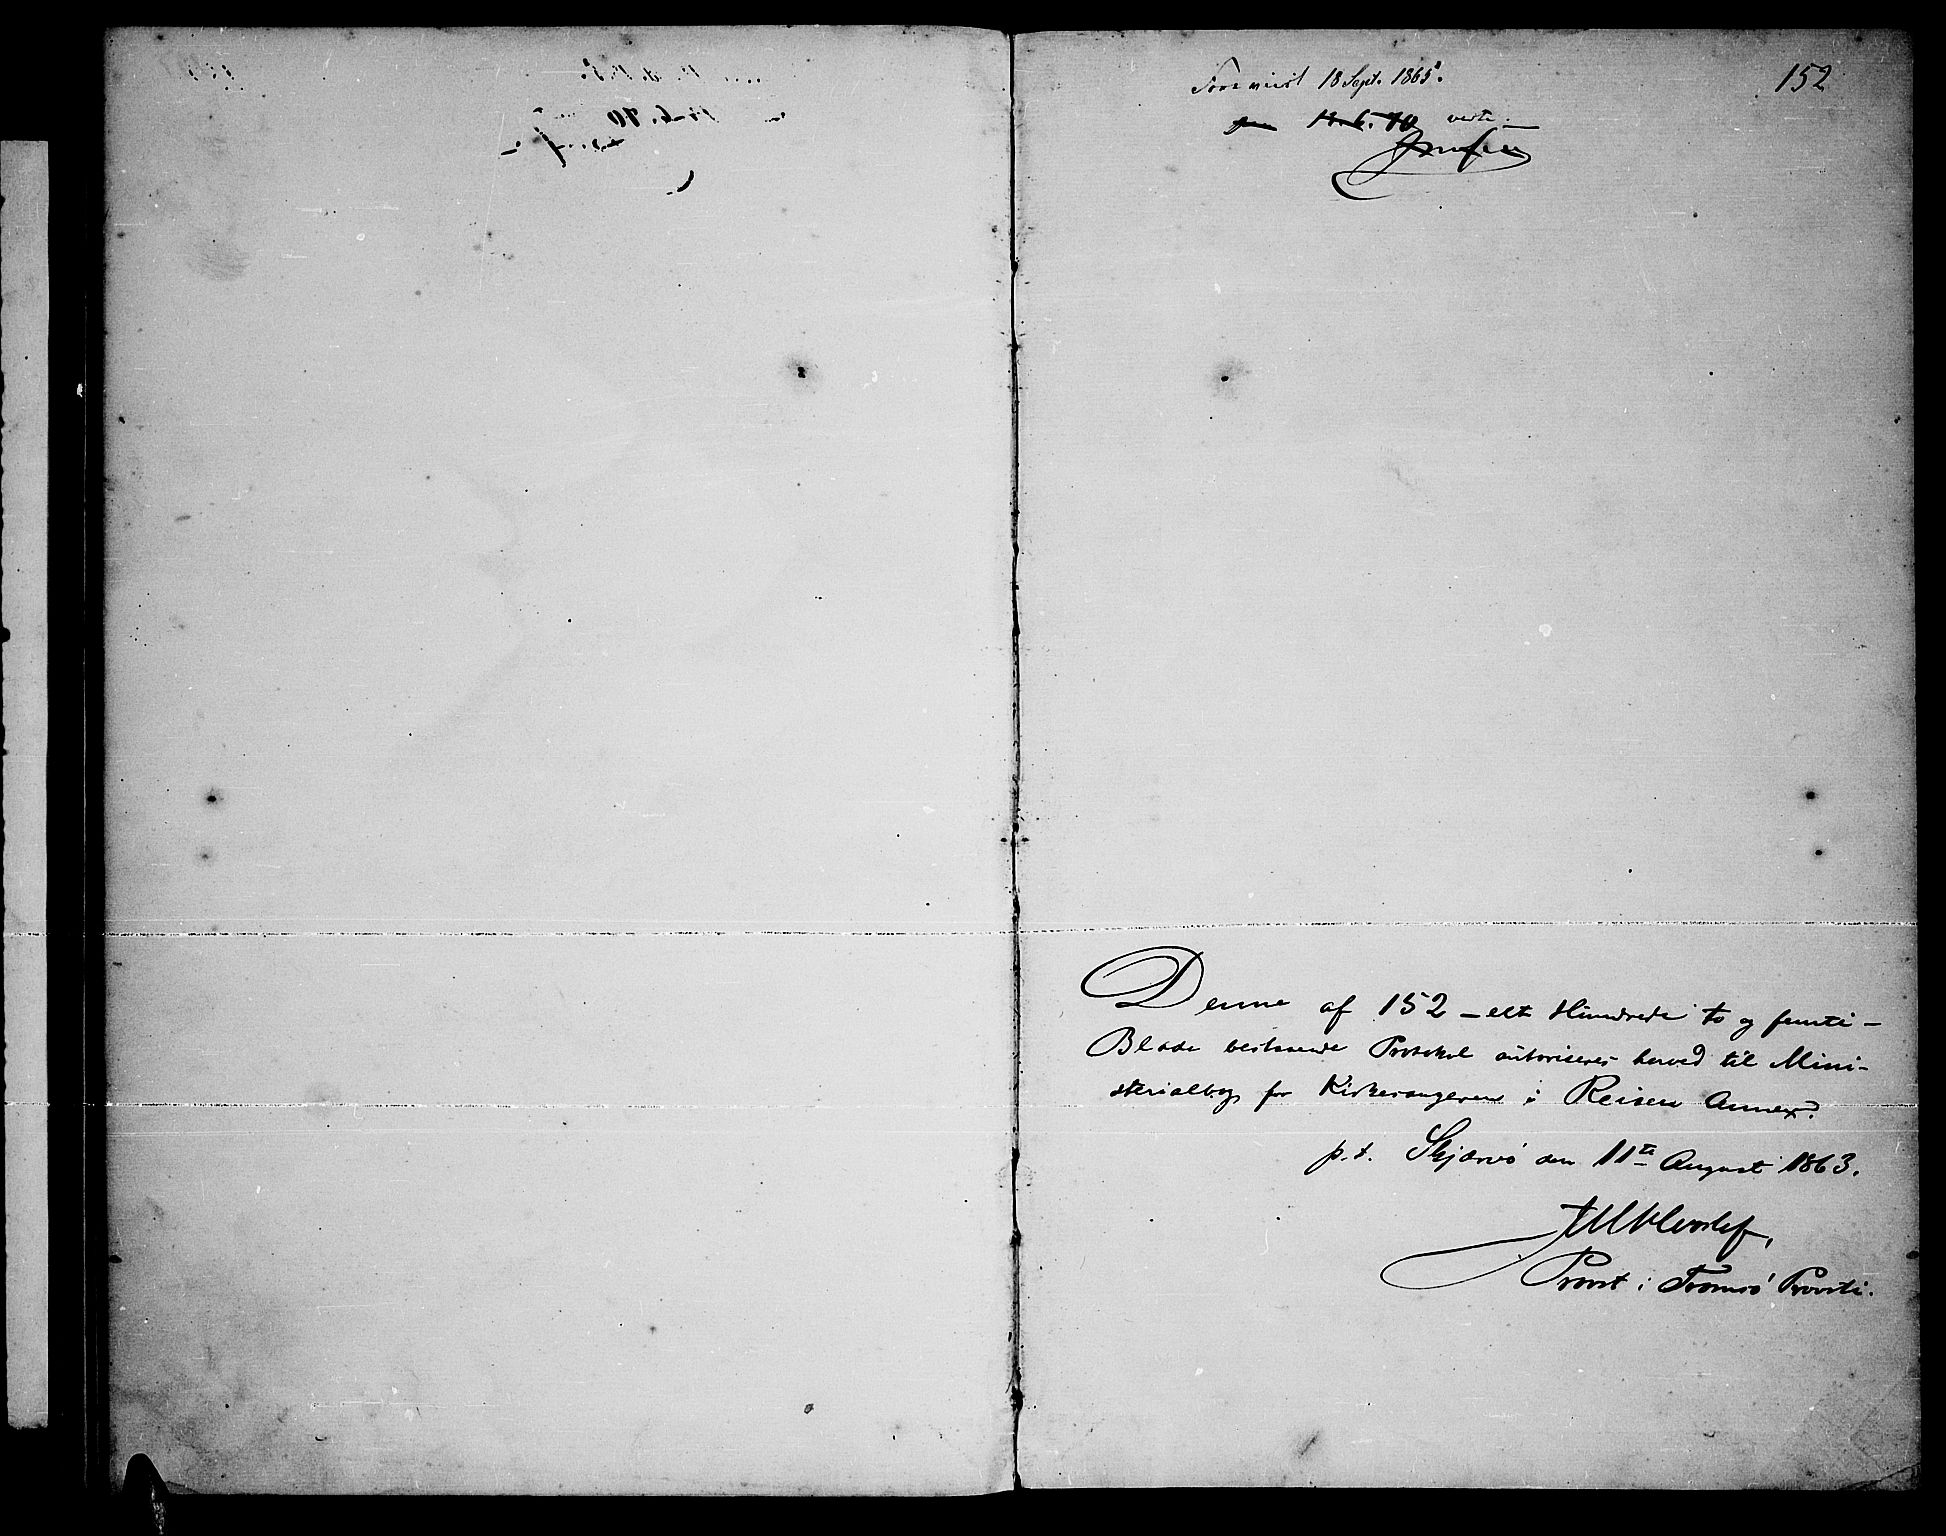 152
Forevist 18 Sept. 1865.
Denne af 152 – ett Hundrede to og femti –
Blade bestaaende Protokol autoriseres herved til Mini-
sterialbog for Kirkesangeren i Reisen Annex.
p.t. Skjærvö den 11te August 1863.
Provst i Tromsö Provsti.